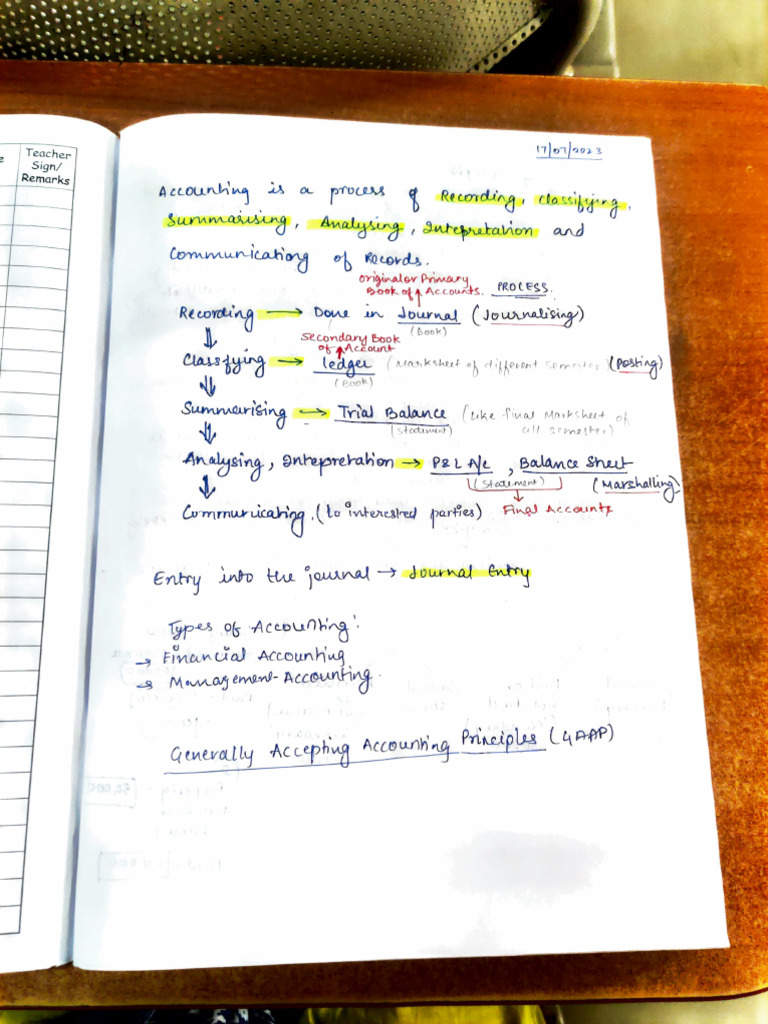 Teacher
Sign/
Remarks
17/07/2023
Accounting is a process of Recording, Classifying,
Summarising, Analysing, Intepretation and
Communicationg of Records.
Original or Primary
Book of Accounts. PROCESS.
Recording → Done in Journal (Journalising)
(Book)
Secondary Book
of Account
Classifying → ledger (Marksheet of different semester) (Posting)
(Book)
Summarising → Trial Balance (like final Marksheet of
(Statement) all semester)
Analysing, Intepretation → P&L A/c, Balance Sheet
(Statement) (Marshalling)
Communicating. (to interested parties) Final Accounts
Entry into the journal → Journal Entry
Types of Accounting:
→ Financial Accounting
→ Management-Accounting.
Generally Accepting Accounting Principles (GAAP)